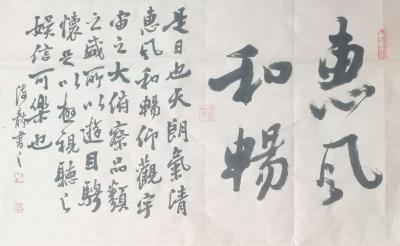 惠风
和暢
是日也天朗氣清
惠风和暢仰觀宇
宙之大俯察品類
之盛所以遊目騁
懷足以極視聽之
娱信可樂也